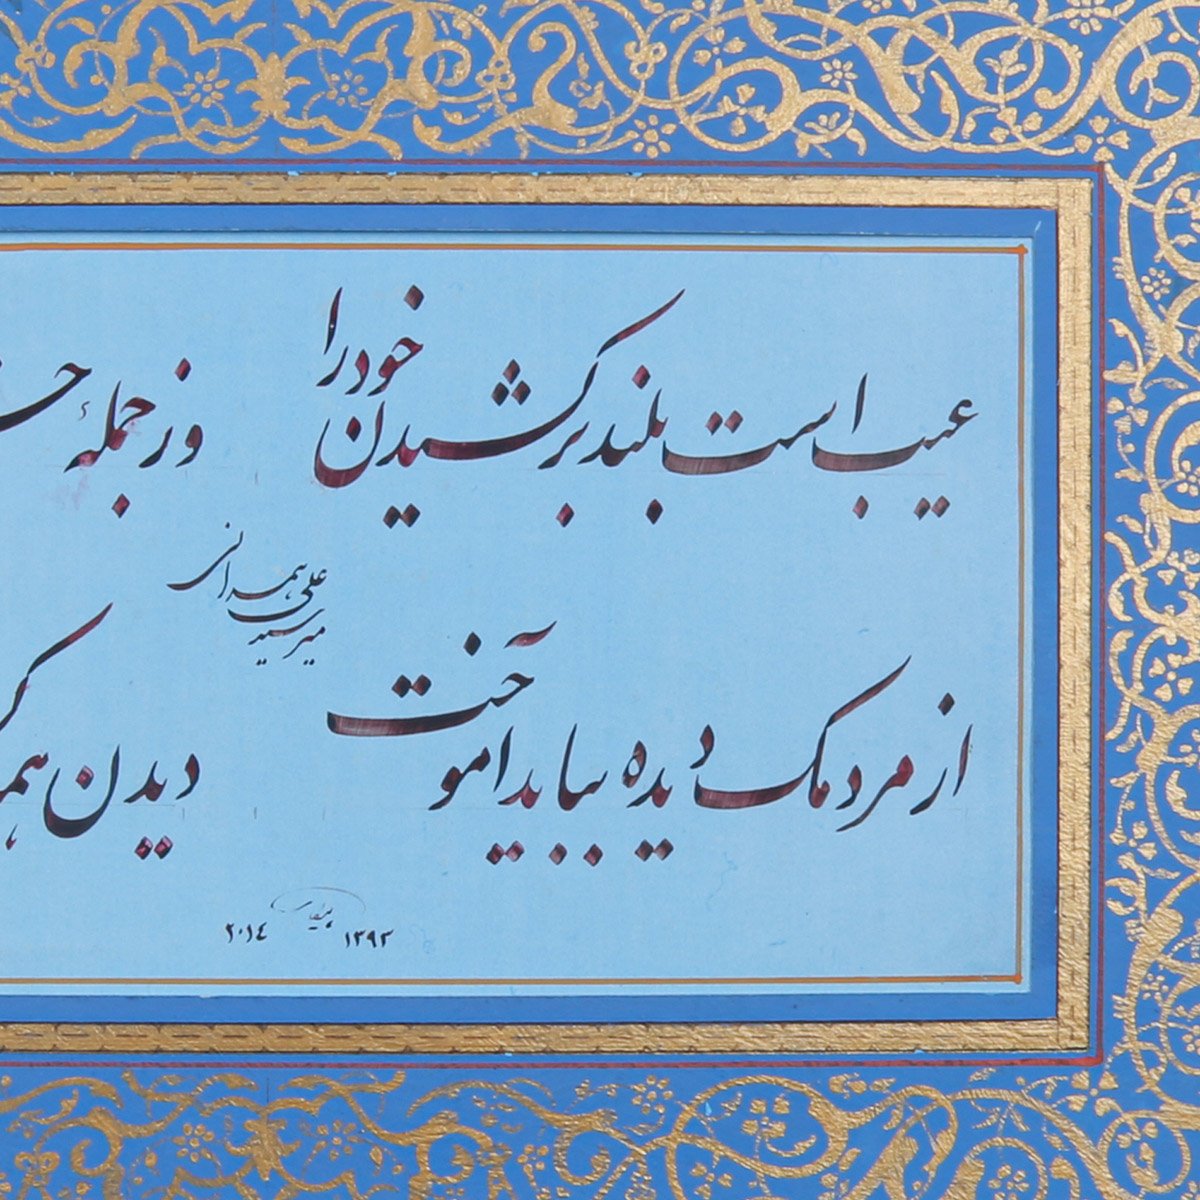 عیب است بلند برکشیدن خود را وز جملهٔ
میر سید علی همدانی
از مردمک دیده بباید آموخت دیدن
۱۳۹۳ ۲۰۱۴